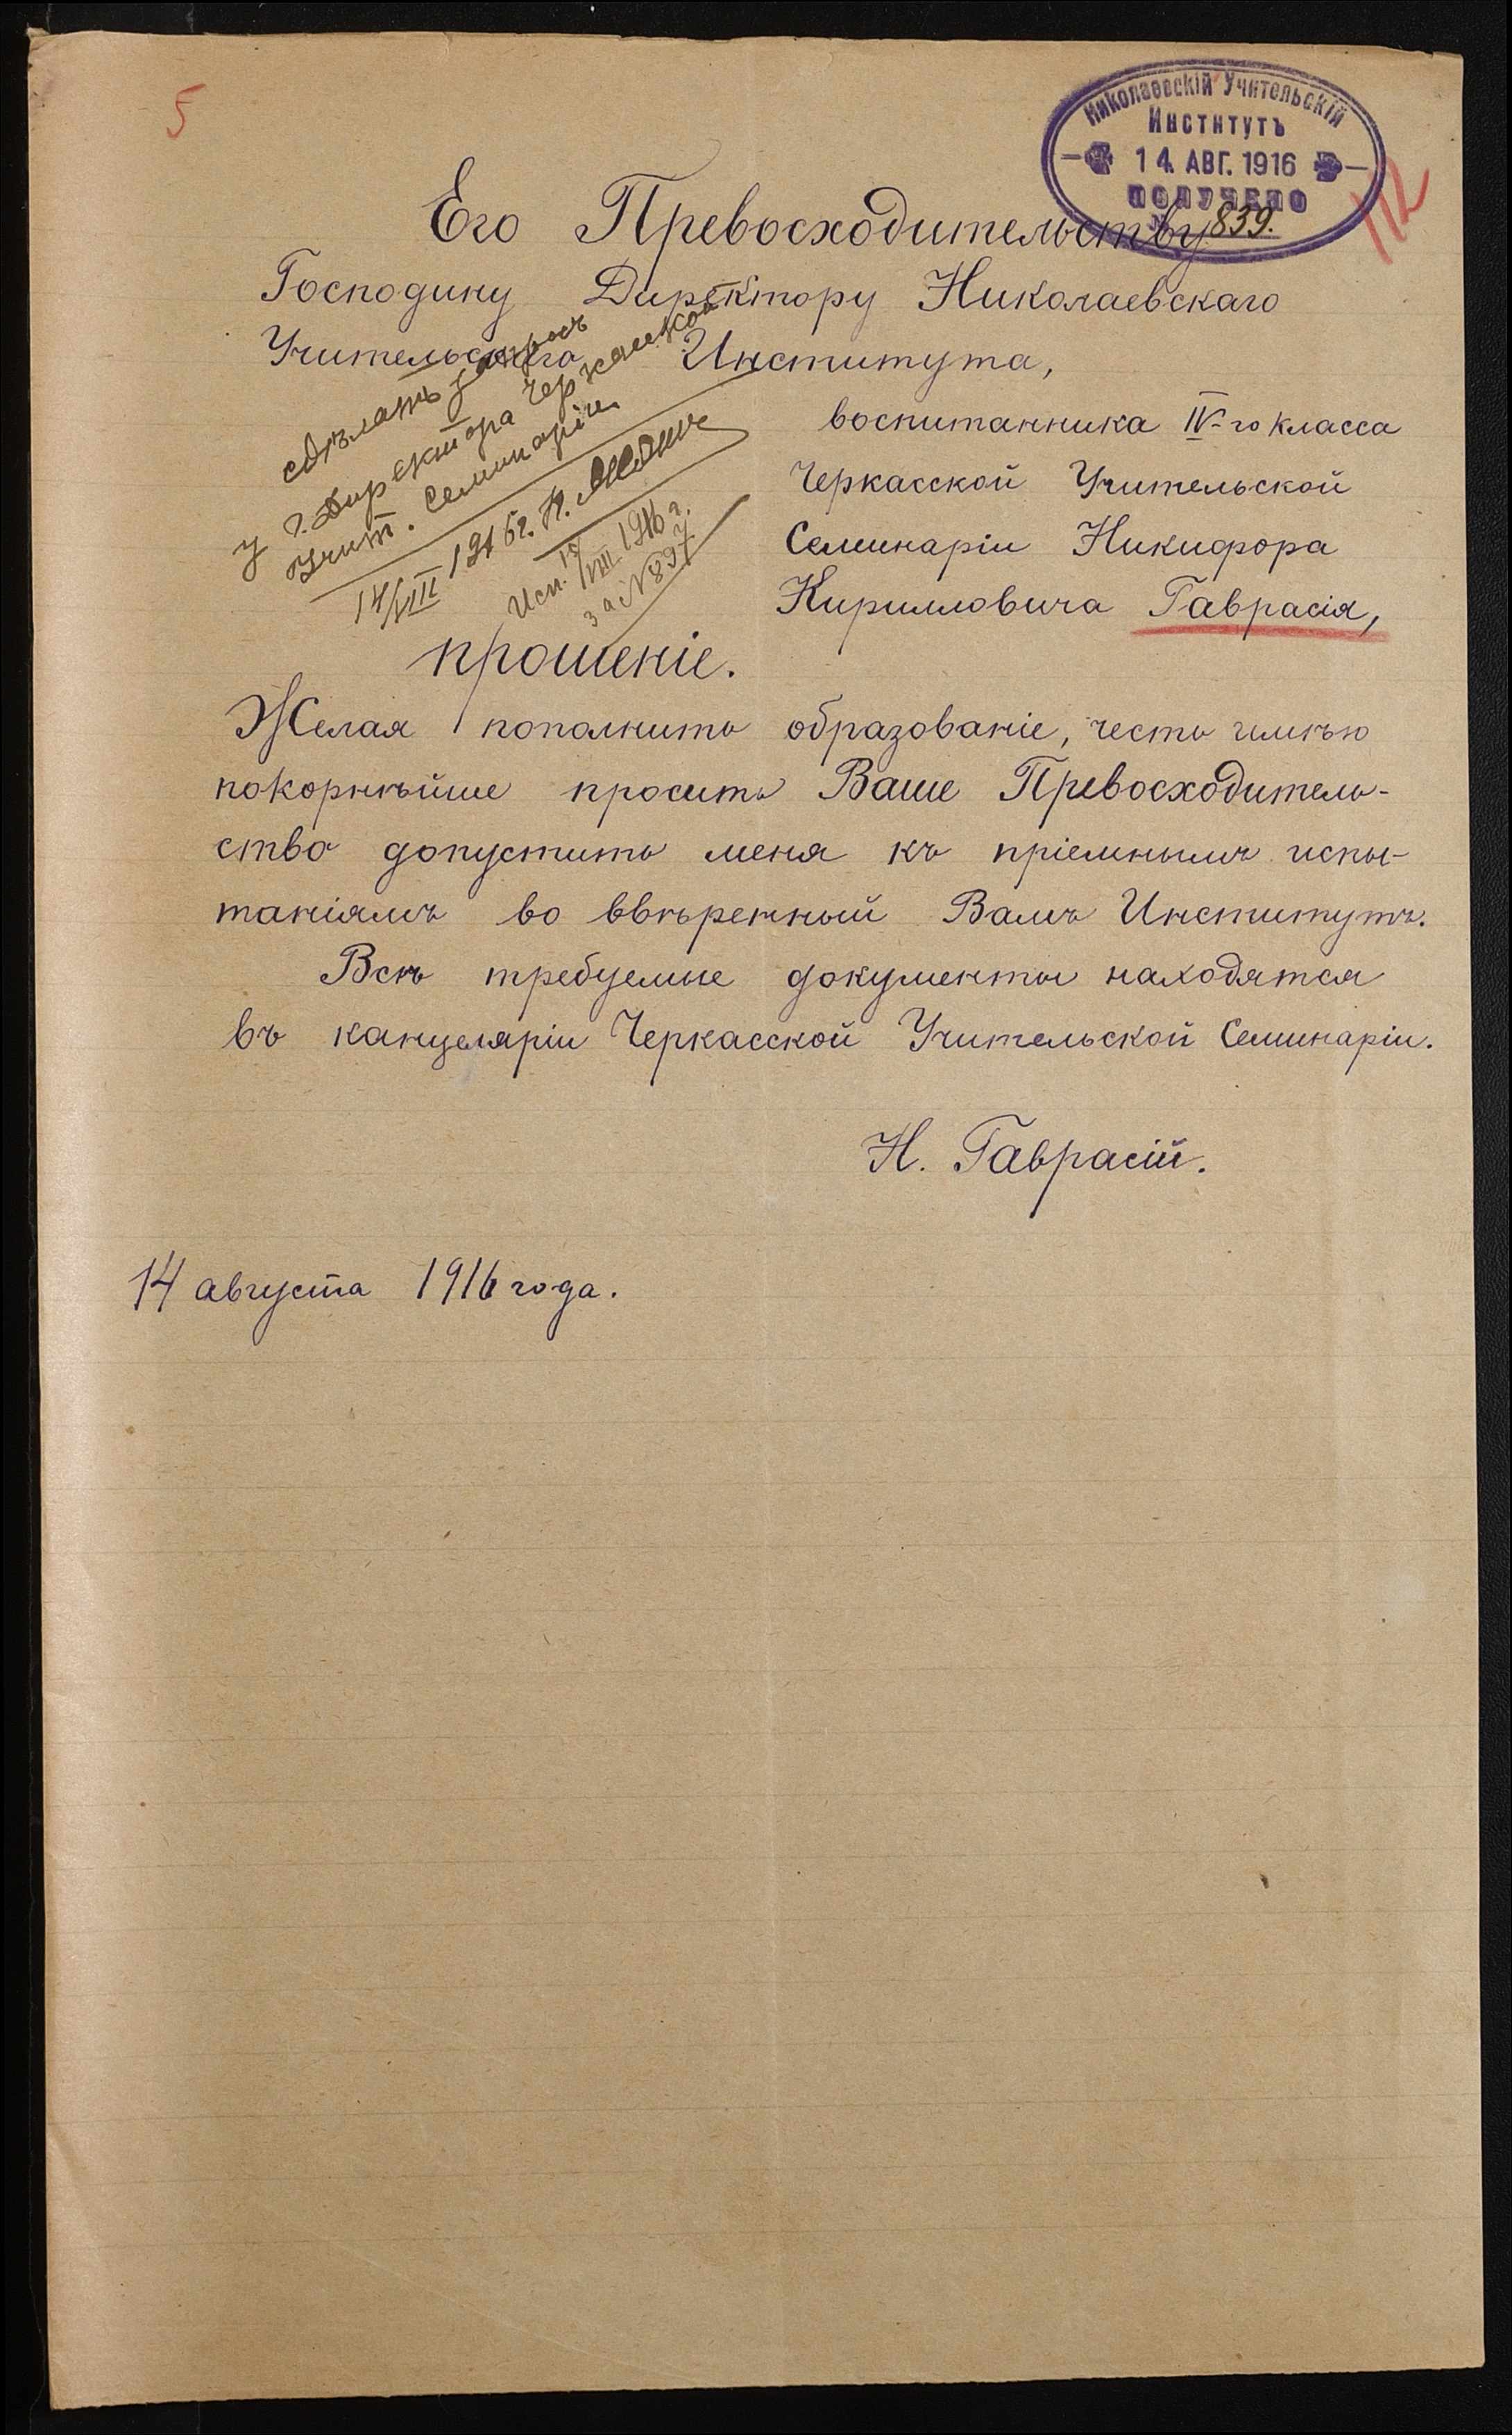 5
Николаевскій Учительскій
Институтъ
14. АВГ. 1916
ПОЛУЧЕНО
839.
112
Его Превосходительству
Господину Директору Николаевскаго
Учительскаго Института,
воспитанника IV-го класса
Черкасской Учительской
Семинаріи Никифора
Кирилловича Гаврасія,
сдѣлать запросъ
у г. Директора Черкасской
Учит. Семинаріи
14/VIII 1916 г. Н.
Исп. VIII 1916 г.
за № 897
прошеніе.
Желая пополнить образованіе, честь имѣю
покорнѣйше просить Ваше Превосходитель-
ство допустить меня къ пріемнымъ испы-
таніямъ во ввѣренный Вамъ Институтъ.
Всѣ требуемые документы находятся
въ канцеляріи Черкасской Учительской Семинаріи.
Н. Гаврасій.
14 августа 1916 года.